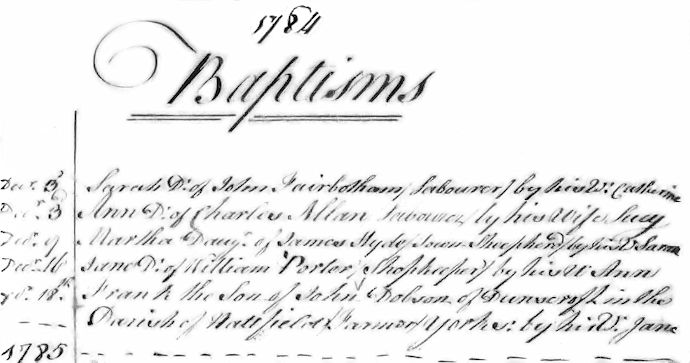 1784
Baptisms
Decr. 3d Sarah Dr. of John Fairbotham (Labourer) by his W. Catherine
Decr. 3d Ann Dr. of Charles Allan Labourer by his Wife Lucy
Decr. 9 Martha Daugr. of James Hyde (Town Shepherd) by his W. Sarah
Decr. 16 Jane Dr. of William Porter (Shopkeeper) by his W Ann
18th Frank the Son of John Dobson of Dunscroft in the
Parish of Hatfield (Farmer) Yorks: by his W. Jane
1785